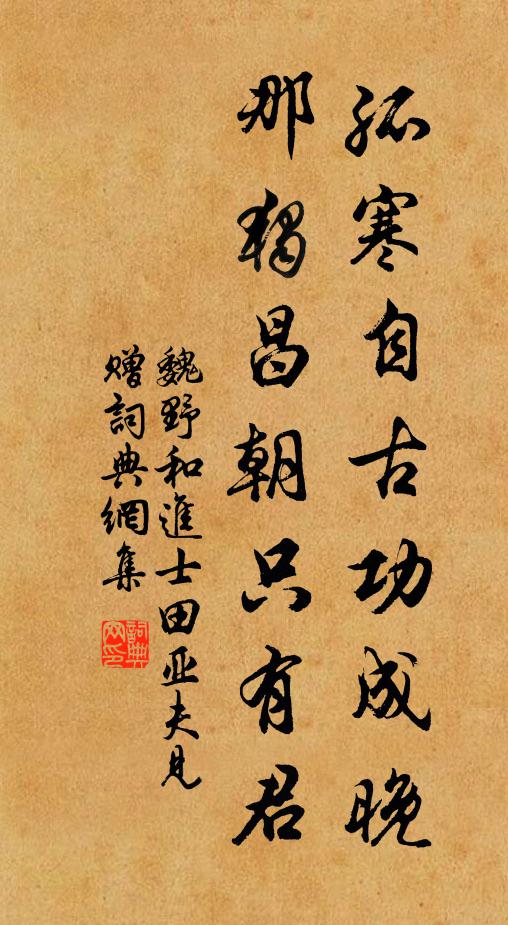 孤寒自古功成晚
那獨昌朝只有君
魏野和進士田亚夫見
贈詞典網集
詞典
网印